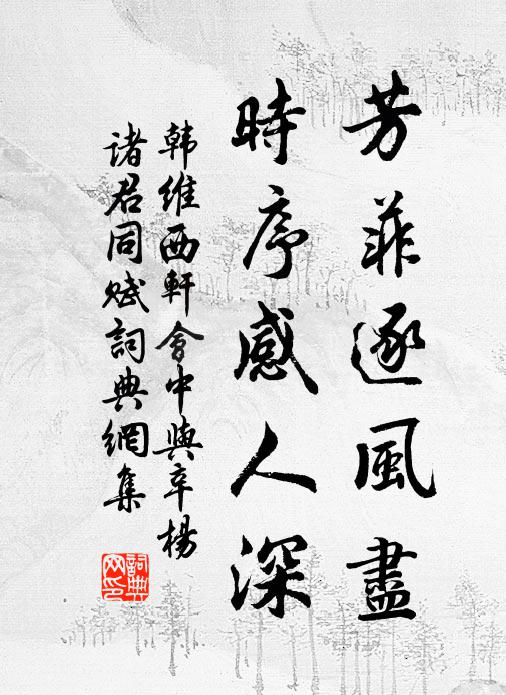 芳菲逐風盡
時序感人深
韓維西軒會中與辛楊
诸君同赋詞典網集
詞典网印